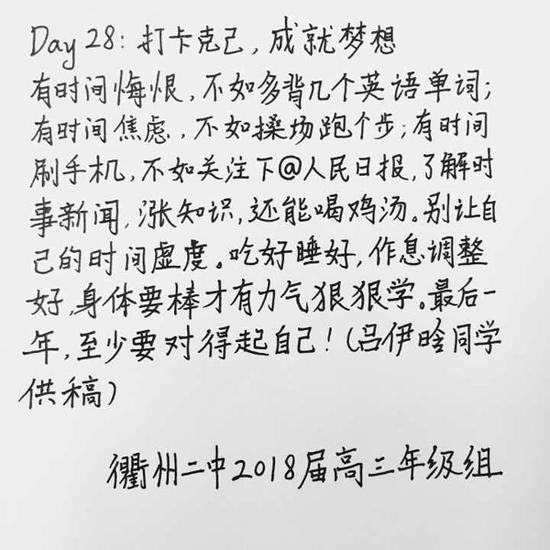 Day 28: 打卡克己，成就梦想
有时间悔恨，不如多背几个英语单词；
有时间焦虑，不如操场跑个步；有时间
刷手机，不如关注下@人民日报，了解时
事新闻，涨知识，还能喝鸡汤。别让自
己的时间虚度。吃好睡好，作息调整
好，身体要棒才有力气狠狠学。最后一
年，至少要对得起自己！（吕伊晗同学
供稿）
衢州二中2018届高三年级组